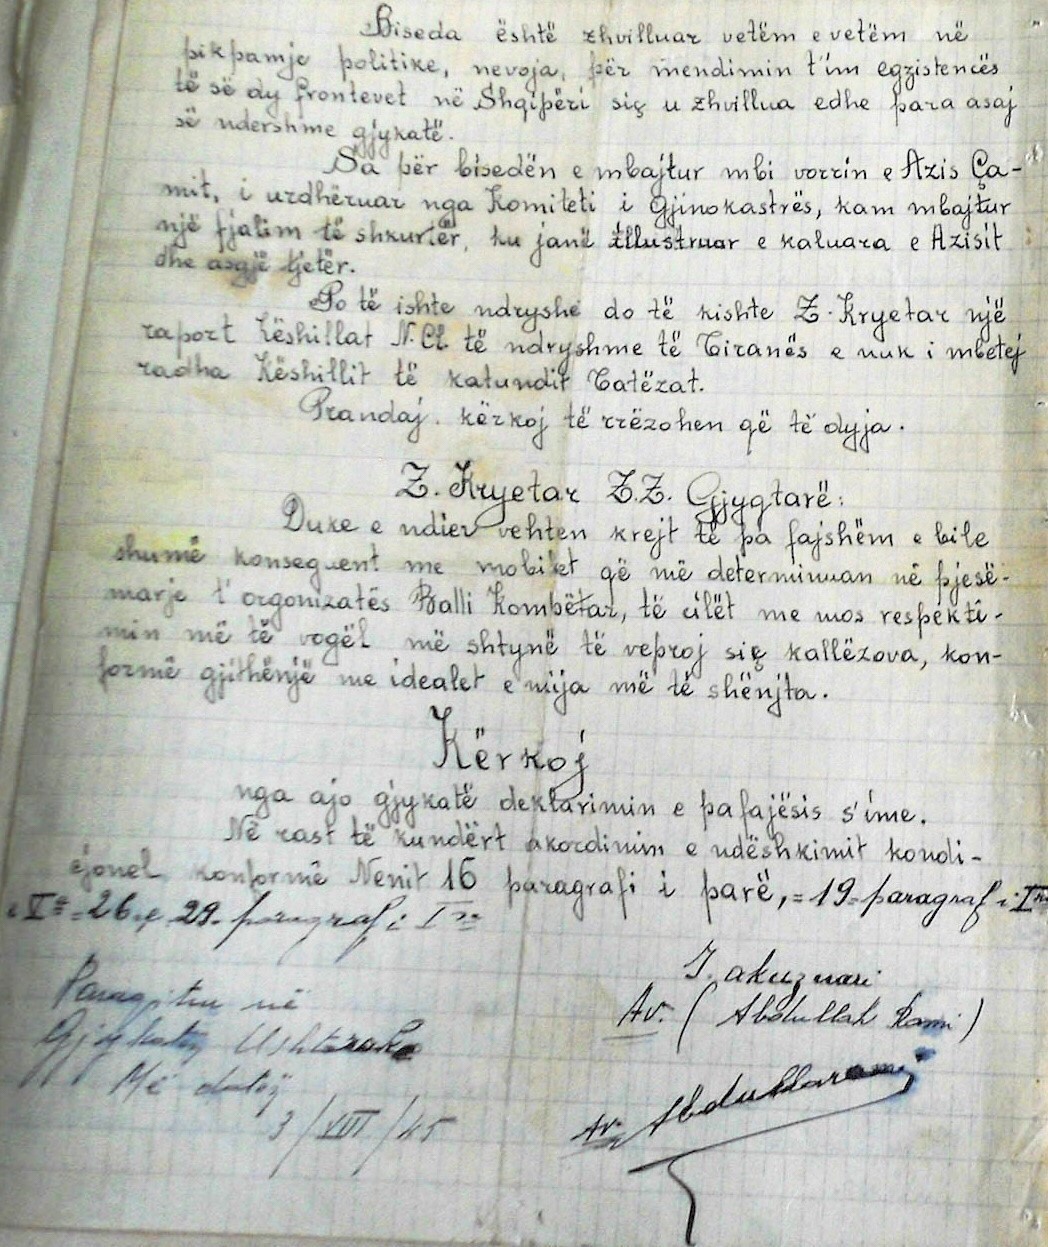 Biseda është zhvilluar vetëm e vetëm në
pikpamje politike, nevoja, për mendimin t'im egzistencës
të së dy frontevet në Shqipëri siç u zhvillua edhe para asaj
së ndershme gjykatë.
Sa për bisedën e mbajtur mbi vorrin e Azis Ça-
mit, i urdhëruar nga Komiteti i Gjinokastrës, kam mbajtur
një fjalim të shkurtër, ku janë illustruar e kaluara e Azisit
dhe asgjë tjetër.
Po të ishte ndryshe do të kishte Z. Kryetar një
raport Këshillat N.Cl. të ndryshme të Tiranës e nuk i mbetej
radha Këshillit të katundit Tatëzat.
Prandaj. kërkoj të rrëzohen që të dyja.
Z. Kryetar Z.Z. Gjyqtarë:
Duke e ndier vehten krejt të pa fajshëm e bile
shumë konseguent me mobilet që më determinuan në pjesë-
marje t'orgonizatës Balli Kombëtar, të cilët me mos respekti-
min më të vogël më shtynë të veproj siç kallëzova, kon-
formë gjithënjë me idealet e mija më të shënjta.
Kërkoj
nga ajo gjykatë deklarimin e pafajësis s'ime.
Në rast të kundërt akordinim e ndëshkimit kondi-
ejonel konformë Nenit 16 paragrafi i parë, = 19 = paragraf i I
e V = 26. e 29. paragraf i I
I akuzuari
Av. (Abdullah Rami)
Paraqitur në
Gjykatëz Ushtarake
Më datëz
3/VIII/45
Av. Abdullarami